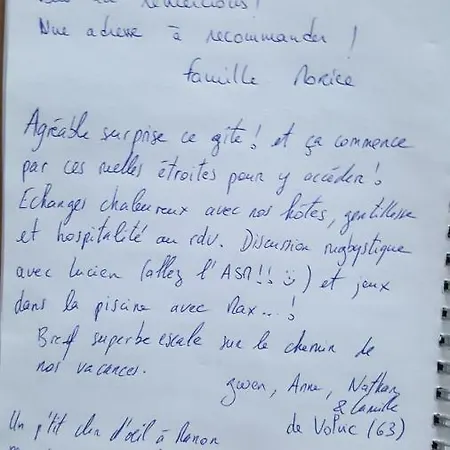 remercions !
Une adresse à recommander !
famille Morice
Agréable surprise ce gîte ! et ça commence
par ces ruelles étroites pour y accéder !
Echanges chaleureux avec nos hôtes, gentillesse
et hospitalité au rdv. Discussion rugbystique
avec Lucien (allez l'ASM !! ☺) et jeux
dans la piscine avec Max... !
Bref superbe escale sur le chemin de
nos vacances.
gwen, Anne, Nathan
& Camille
de Volvic (63)
Un p'tit clin d'oeil à Manon